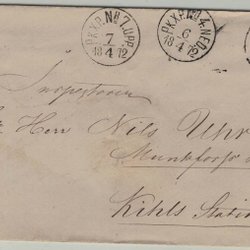 PKXP.Nº7.UPP
7
18 4 72
PKXP.Nº4.NED
6
18 4 72
Inspectoren
Herr Nils Uhr
Munkfors
Kihls Station